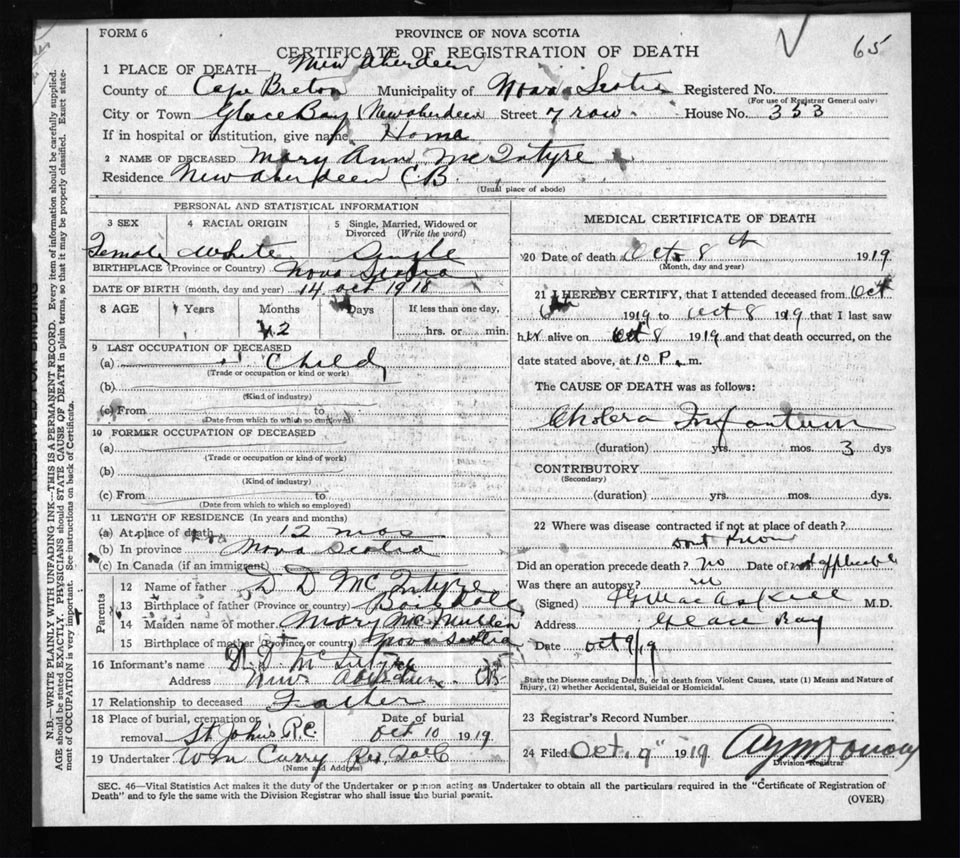 FORM 6
PROVINCE OF NOVA SCOTIA
65
CERTIFICATE OF REGISTRATION OF DEATH
1 PLACE OF DEATH— New Aberdeen
County of Cape Breton Municipality of Nova Scotia Registered No.
(For use of Registrar General only)
City or Town Glace Bay (New Aberdeen Street 7 row House No. 353
If in hospital or institution, give name Home
2 NAME OF DECEASED Mary Ann McIntyre
Residence New Aberdeen C B.
(Usual place of abode)
PERSONAL AND STATISTICAL INFORMATION
3 SEX 4 RACIAL ORIGIN 5 Single, Married, Widowed or Divorced (Write the word)
Female White Single
BIRTHPLACE (Province or Country) Nova Scotia
DATE OF BIRTH (month, day and year) 14 Oct 1918
8 AGE Years Months Days If less than one day,
12 hrs. or min.
9 LAST OCCUPATION OF DECEASED
(a) Child
(Trade or occupation or kind or work)
(b)
(Kind of industry)
(c) From to
(Date from which to which so employed)
10 FORMER OCCUPATION OF DECEASED
(a)
(Trade or occupation or kind of work)
(b)
(Kind of industry)
(c) From to
(Date from which to which so employed)
11 LENGTH OF RESIDENCE (In years and months)
(a) At place of death 12 mos
(b) In province Nova Scotia
(c) In Canada (if an immigrant)
Parents
12 Name of father D D McIntyre
13 Birthplace of father (Province or country)
14 Maiden name of mother Mary McMullen
15 Birthplace of mother Nova Scotia
16 Informant's name D. D McIntyre
Address New Aberdeen CB
17 Relationship to deceased Father
18 Place of burial, cremation or removal St John's Date of burial Oct 10 1919
19 Undertaker Wm Curry
(Name and Address)
MEDICAL CERTIFICATE OF DEATH
20 Date of death Oct 8th 1919
(Month, day and year)
21 I HEREBY CERTIFY, that I attended deceased from Oct
1919 to Oct 8 1919 that I last saw
her alive on Oct 8 1919 and that death occurred, on the
date stated above, at 10 P. m.
The CAUSE OF DEATH was as follows:
Cholera Infantum
(duration) yrs. mos. 3 dys
CONTRIBUTORY
(Secondary)
(duration) yrs. mos. dys.
22 Where was disease contracted if not at place of death?
Dont Know
Did an operation precede death? no Date of not applicable
Was there an autopsy?
(Signed) MacAskill M.D.
Address Glace Bay
Date Oct 9/19
State the Disease causing Death, or in death from Violent Causes, state (1) Means and Nature of
Injury, (2) whether Accidental, Suicidal or Homicidal.
23 Registrar's Record Number
24 Filed Oct. 9" 1919
Division Registrar
SEC. 46—Vital Statistics Act makes it the duty of the Undertaker or person acting as Undertaker to obtain all the particulars required in the "Certificate of Registration of
Death" and to fyle the same with the Division Registrar who shall issue the burial permit.
(OVER)
N.B.—WRITE PLAINLY WITH UNFADING INK—THIS IS A PERMANENT RECORD. Every item of information should be carefully supplied.
AGE should be stated EXACTLY. PHYSICIANS should STATE CAUSE OF DEATH in plain terms, so that it may be properly classified. Exact state-
ment of OCCUPATION is very important. See instructions on back of Certificate.